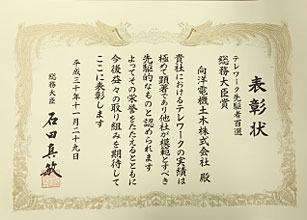 表彰状
テレワーク先駆者百選
総務大臣賞
向洋電機土木株式会社 殿
貴社におけるテレワークの実績は
極めて顕著であり他社が模範とすべき
先駆的なものと認められます
よってその栄誉をたたえるとともに
今後益々の取り組みを期待して
ここに表彰します
平成三十年十一月二十九日
総務大臣 石田真敏